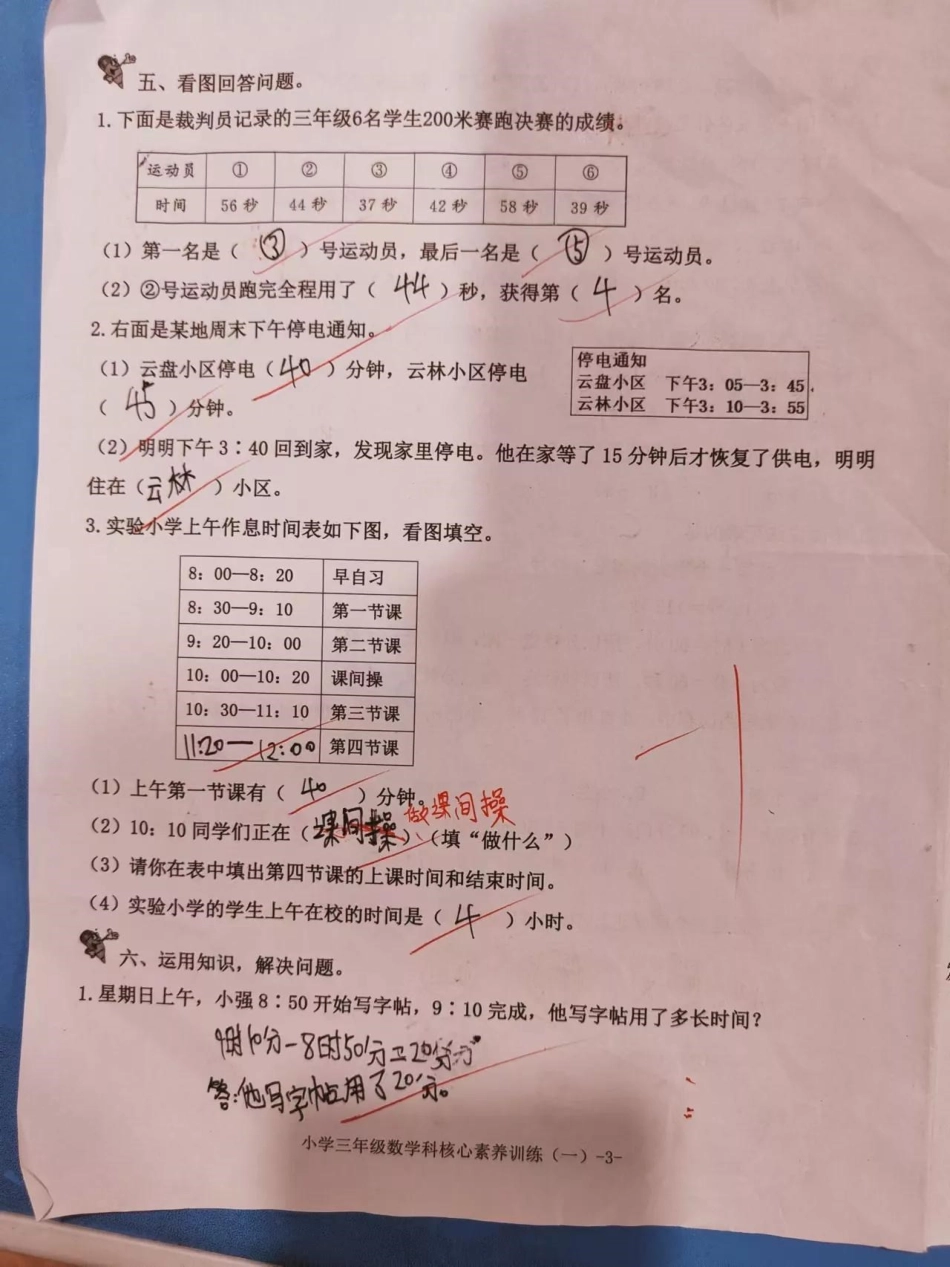 五、看图回答问题。
1.下面是裁判员记录的三年级6名学生200米赛跑决赛的成绩。
运动员 ① ② ③ ④ ⑤ ⑥
时间 56秒 44秒 37秒 42秒 58秒 39秒
(1)第一名是(③)号运动员，最后一名是(⑤)号运动员。
(2)②号运动员跑完全程用了(44)秒，获得第(4)名。
2.右面是某地周末下午停电通知。
(1)云盘小区停电(40)分钟，云林小区停电
(45)分钟。
停电通知
云盘小区 下午3：05—3：45
云林小区 下午3：10—3：55
(2)明明下午3：40回到家，发现家里停电。他在家等了15分钟后才恢复了供电，明明
住在(云林)小区。
3.实验小学上午作息时间表如下图，看图填空。
8：00—8：20 早自习
8：30—9：10 第一节课
9：20—10：00 第二节课
10：00—10：20 课间操
10：30—11：10 第三节课
11:20—12:00 第四节课
(1)上午第一节课有(40)分钟。
做课间操
(2)10：10同学们正在(课间操)(填“做什么”)
(3)请你在表中填出第四节课的上课时间和结束时间。
(4)实验小学的学生上午在校的时间是(4)小时。
六、运用知识，解决问题。
1.星期日上午，小强8：50开始写字帖，9：10完成，他写字帖用了多长时间？
9时10分-8时50分=20分
答:他写字帖用了20分。
小学三年级数学科核心素养训练(一)-3-